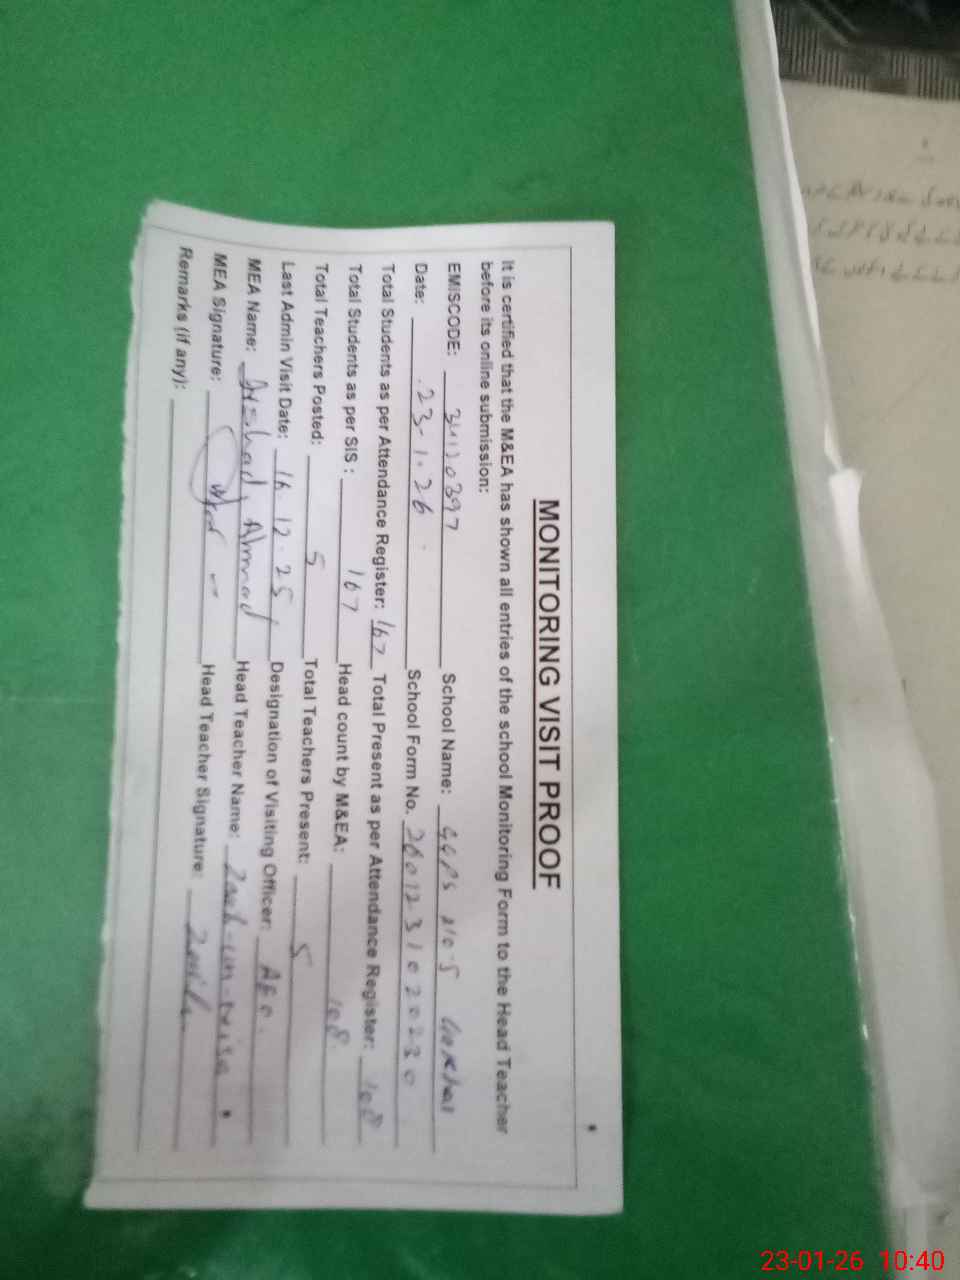 MONITORING VISIT PROOF
It is certified that the M&EA has shown all entries of the school Monitoring Form to the Head Teacher
before its online submission:
EMISCODE: 34120397 School Name: GGPS No.5
Date: 23-1-26 School Form No. 260123102030
Total Students as per Attendance Register: 167 Total Present as per Attendance Register: 108
Total Students as per SIS: 167 Head count by M&EA: 108
Total Teachers Posted: 5 Total Teachers Present: 5
Last Admin Visit Date: 16.12.25 Designation of Visiting Officer: AEO.
MEA Name: Arshad Ahmad Head Teacher Name:
MEA Signature: Head Teacher Signature:
Remarks (if any):
23-01-26 10:40